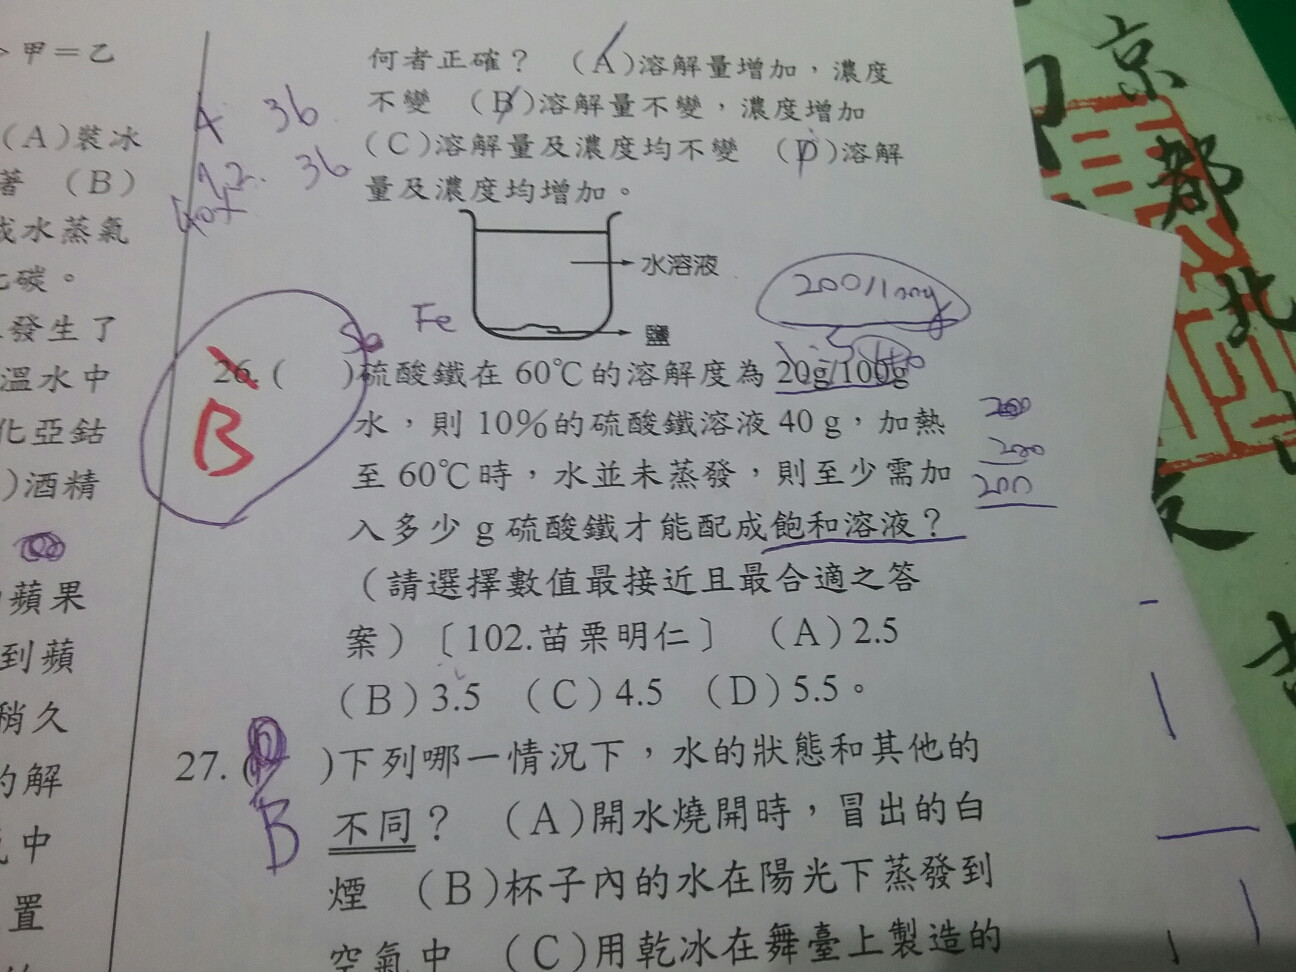 甲＝乙
(A)裝冰
著 (B)
成水蒸氣
碳。
發生了
溫水中
化亞鈷
)酒精
蘋果
到蘋
稍久
的解
中
置
何者正確？ (A)溶解量增加，濃度
不變 (B)溶解量不變，濃度增加
(C)溶解量及濃度均不變 (D)溶解
量及濃度均增加。
36
36
水溶液
鹽
Fe
26. ( )硫酸鐵在 60℃的溶解度為 20g/100g
B
水，則 10%的硫酸鐵溶液 40 g，加熱
至 60℃時，水並未蒸發，則至少需加
入多少 g 硫酸鐵才能配成飽和溶液？
(請選擇數值最接近且最合適之答
案)〔102.苗栗明仁〕 (A)2.5
(B)3.5 (C)4.5 (D)5.5。
200
200
27. ( )下列哪一情況下，水的狀態和其他的
B
不同？ (A)開水燒開時，冒出的白
煙 (B)杯子內的水在陽光下蒸發到
空氣中 (C)用乾冰在舞臺上製造的
京
都
北